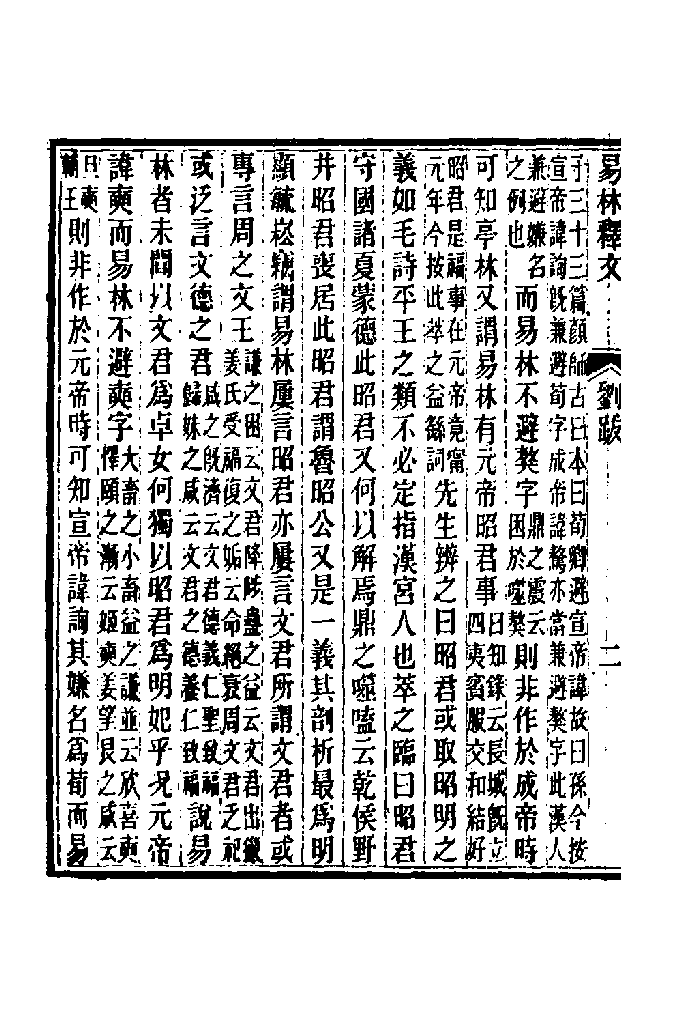 易林釋文 劉跋 二
子三十三篇顏師古曰本曰荀卿避宣帝諱故曰孫今按
宣帝諱詢既兼避荀字成帝諱驁亦當兼避獒字此漢人
兼避嫌名之例也而易林不避獒字鼎之震云困於噬獒則非作於成帝時
可知亭林又謂易林有元帝昭君事日知錄云長城既立四夷賓服交和結好
昭君是福事在元帝竟寧元年今按此萃之益繇詞先生辨之曰昭君或取昭明之
義如毛詩平王之類不必定指漢宮人也萃之臨曰昭君
守國諸夏蒙德此昭君又何以解焉鼎之噬嗑云乾侯野
井昭君喪居此昭君謂魯昭公又是一義其剖析最爲明
顯毓崧竊謂易林屢言昭君亦屢言文君所謂文君者或
專言周之文王謙之困云文君降陟蠱之益云文君出獵姜氏受福復之姤云命絕衰周文君乏祀
或泛言文德之君咸之既濟云文君德義仁聖致福歸妹之咸云文君之德養仁致福說易
林者未聞以文君爲卓女何獨以昭君爲明妃乎況元帝
諱奭而易林不避奭字大畜之小畜益之謙並云欣喜奭懌頤之漸云姬奭姜望艮之咸云
旦奭輔王則非作於元帝時可知宣帝諱詢其嫌名爲荀而易